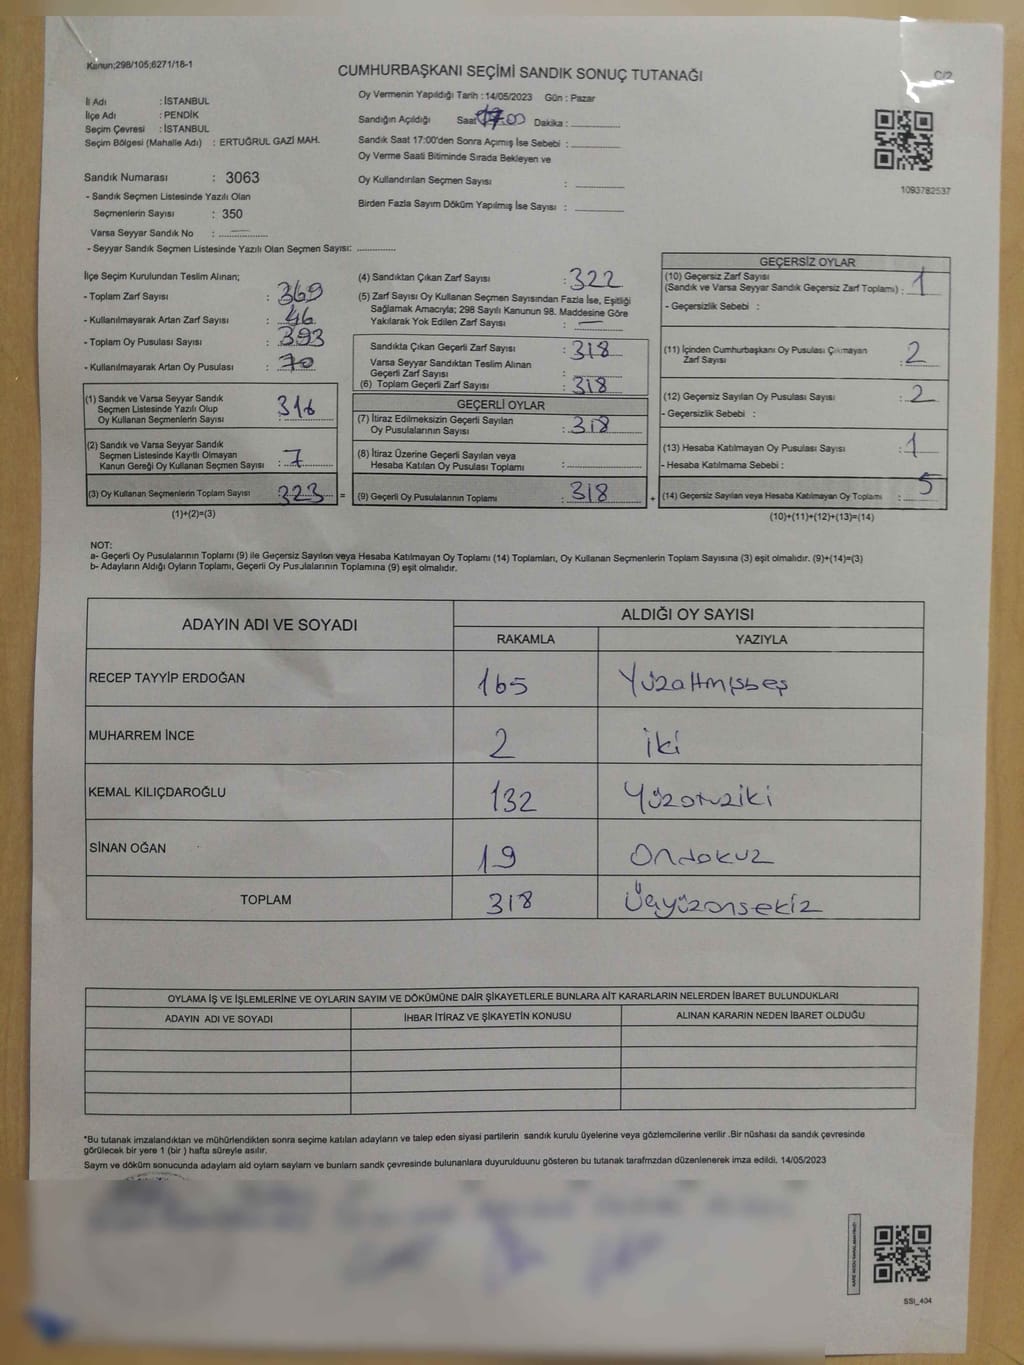 Kanun;298/105;6271/18-1
CUMHURBAŞKANI SEÇİMİ SANDIK SONUÇ TUTANAĞI
C/2
İl Adı : İSTANBUL
İlçe Adı : PENDİK
Seçim Çevresi : İSTANBUL
Seçim Bölgesi (Mahalle Adı) : ERTUĞRUL GAZİ MAH.
Sandık Numarası : 3063
- Sandık Seçmen Listesinde Yazılı Olan
Seçmenlerin Sayısı : 350
Varsa Seyyar Sandık No :
- Seyyar Sandık Seçmen Listesinde Yazılı Olan Seçmen Sayısı:
Oy Vermenin Yapıldığı Tarih : 14/05/2023 Gün : Pazar
Sandığın Açıldığı Saat 17.00 Dakika :
Sandık Saat 17:00'den Sonra Açımış İse Sebebi :
Oy Verme Saati Bitiminde Sırada Bekleyen ve
Oy Kullandırılan Seçmen Sayısı :
Birden Fazla Sayım Döküm Yapılmış İse Sayısı :
1093782537
İlçe Seçim Kurulundan Teslim Alınan;
- Toplam Zarf Sayısı : 369
- Kullanılmayarak Artan Zarf Sayısı : 46
- Toplam Oy Pusulası Sayısı : 393
- Kullanılmayarak Artan Oy Pusulası : 70
(1) Sandık ve Varsa Seyyar Sandık
Seçmen Listesinde Yazılı Olup
Oy Kullanan Seçmenlerin Sayısı : 316
(2) Sandık ve Varsa Seyyar Sandık
Seçmen Listesinde Kayıtlı Olmayan
Kanun Gereği Oy Kullanan Seçmen Sayısı : 7
(3) Oy Kullanan Seçmenlerin Toplam Sayısı 323 =
(1)+(2)=(3)
(4) Sandıktan Çıkan Zarf Sayısı : 322
(5) Zarf Sayısı Oy Kullanan Seçmen Sayısından Fazla İse, Eşitliği
Sağlamak Amacıyla; 298 Sayılı Kanunun 98. Maddesine Göre
Yakılarak Yok Edilen Zarf Sayısı :
Sandıkta Çıkan Geçerli Zarf Sayısı : 318
Varsa Seyyar Sandıktan Teslim Alınan
Geçerli Zarf Sayısı :
(6) Toplam Geçerli Zarf Sayısı : 318
GEÇERLİ OYLAR
(7) İtiraz Edilmeksizin Geçerli Sayılan
Oy Pusulalarının Sayısı : 318
(8) İtiraz Üzerine Geçerli Sayılan veya
Hesaba Katılan Oy Pusulası Toplamı :
(9) Geçerli Oy Pusulalarının Toplamı : 318 +
GEÇERSİZ OYLAR
(10) Geçersiz Zarf Sayısı
(Sandık ve Varsa Seyyar Sandık Geçersiz Zarf Toplamı) : 1
- Geçersizlik Sebebi :
(11) İçinden Cumhurbaşkanı Oy Pusulası Çıkmayan
Zarf Sayısı : 2
(12) Geçersiz Sayılan Oy Pusulası Sayısı : 2
- Geçersizlik Sebebi :
(13) Hesaba Katılmayan Oy Pusulası Sayısı : 1
- Hesaba Katılmama Sebebi :
(14) Geçersiz Sayılan veya Hesaba Katılmayan Oy Toplamı : 5
(10)+(11)+(12)+(13)=(14)
NOT:
a- Geçerli Oy Pusulalarının Toplamı (9) ile Geçersiz Sayılan veya Hesaba Katılmayan Oy Toplamı (14) Toplamları, Oy Kullanan Seçmenlerin Toplam Sayısına (3) eşit olmalıdır. (9)+(14)=(3)
b- Adayların Aldığı Oyların Toplamı, Geçerli Oy Pusulalarının Toplamına (9) eşit olmalıdır.
ADAYIN ADI VE SOYADI
ALDIĞI OY SAYISI
RAKAMLA YAZIYLA
RECEP TAYYİP ERDOĞAN 165 Yüzaltmışbeş
MUHARREM İNCE 2 iki
KEMAL KILIÇDAROĞLU 132 Yüzotuziki
SİNAN OĞAN 19 Ondokuz
TOPLAM 318 Üçyüzonsekiz
OYLAMA İŞ VE İŞLEMLERİNE VE OYLARIN SAYIM VE DÖKÜMÜNE DAİR ŞİKAYETLERLE BUNLARA AİT KARARLARIN NELERDEN İBARET BULUNDUKLARI
ADAYIN ADI VE SOYADI İHBAR İTİRAZ VE ŞİKAYETİN KONUSU ALINAN KARARIN NEDEN İBARET OLDUĞU
*Bu tutanak imzalandıktan ve mühürlendikten sonra seçime katılan adayların ve talep eden siyasi partilerin sandık kurulu üyelerine veya gözlemcilerine verilir .Bir nüshası da sandık çevresinde
görülecek bir yere 1 (bir ) hafta süreyle asılır.
Sayım ve döküm sonucunda adayların ald oyların sayların ve bunların sandk çevresinde bulunanlara duyurulduunu gösteren bu tutanak tarafmzdan düzenlenerek imza edildi. 14/05/2023
SSI_404